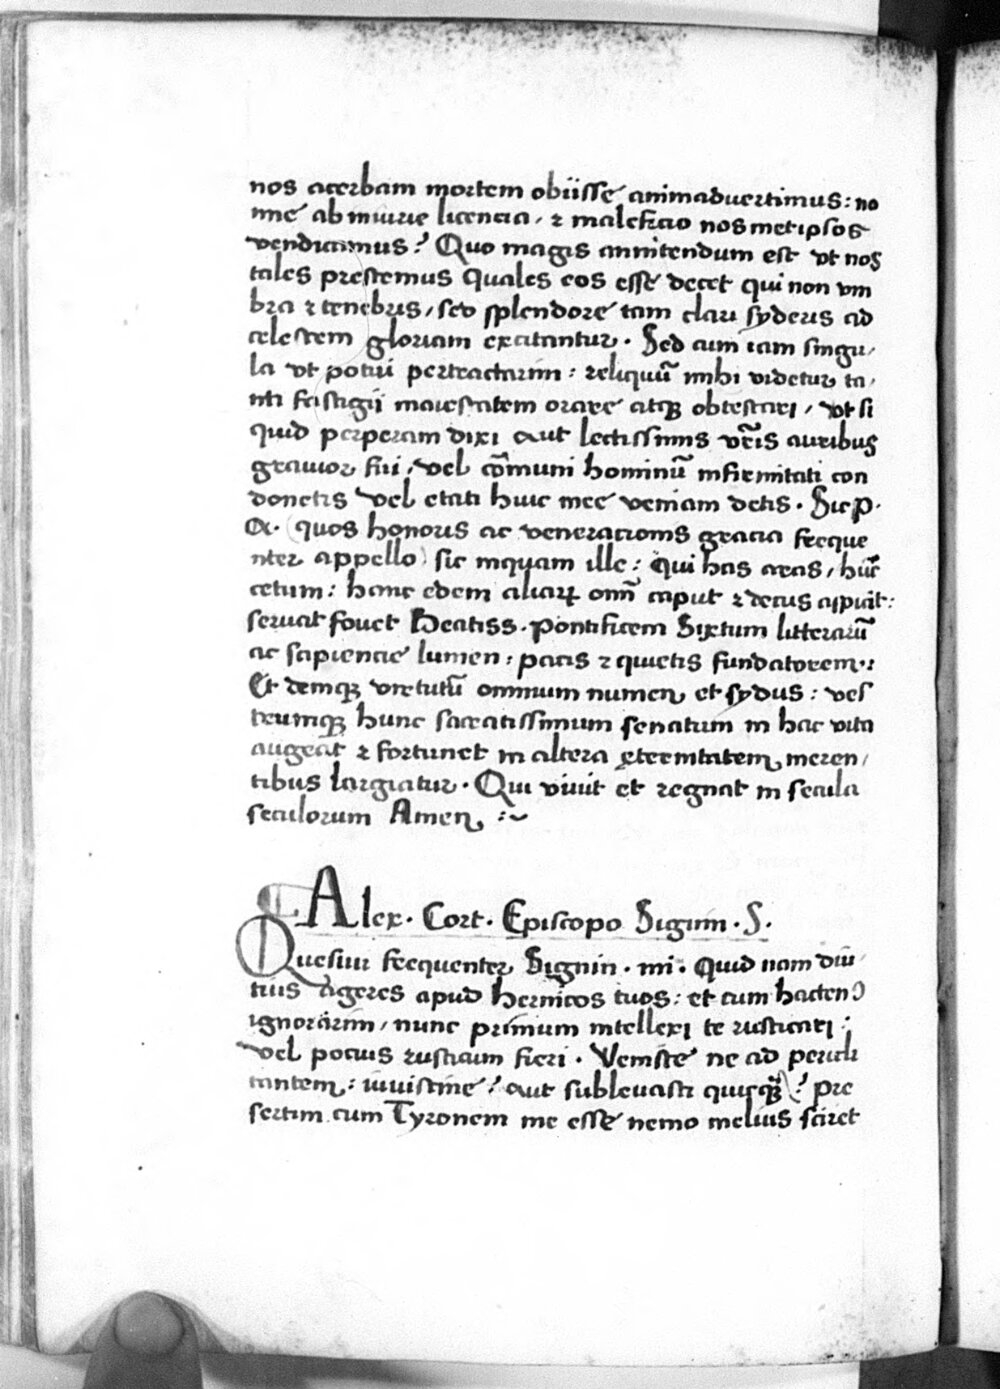 nos acerbam mortem obiisse animadvertimus: no
nne ab iniurie licencia, & maleficio nosmetipsos
vendicamus? Quo magis annitendum est vt nos
tales prestemus quales eos esse decet qui non vm
bra & tenebris, sed splendore tam clari syderis ad
celestem gloriam excitantur. Sed cum iam singu,
la vt potui pertractarim: reliquū mihi videtur ta,
nti fastigii maiestatem orare atqꝫ obtestari, vt si
quid perperam dixi aut lectissimis vr̄is auribus
gravior fui, vel cōmuni hominū infirmitati con
donetis vel etati huic mee veniam detis. Sic p.
a. quos honoris ac venerationis gracia freque
nter appello sic inquam ille: Qui has aras, hūc
cetum: hanc edem aliarꝝ omī caput & decus aspicit:
servat fovet Beatiss. pontificem Sixtum litterarū
ac sapiencie lumen: pacis & quietis fundatorem:
Et deniqꝫ virtutū omnium numen et sydus: ves
trumqꝫ hunc sacratissimum senatum in hac vita
augeat & fortunet in altera ęternitatem meren,
tibus largiatur. Qui vivit et regnat in secula
seculorum Amen :~
Alex. Cort. Episcopo Signin. S.
Quesivi frequenter Signin. mi. Quid nam diu,
tius ageres apud hernicos tuos: et cum hactenꝰ
ignorarim, nunc primum intellexi te rusticari:
vel pocius rusticum fieri. Veniste ne ad pericli
tantem: iuvistine? aut sublevasti quicqꝫ? pre
sertim cum Tyronem me esse nemo melius sciret